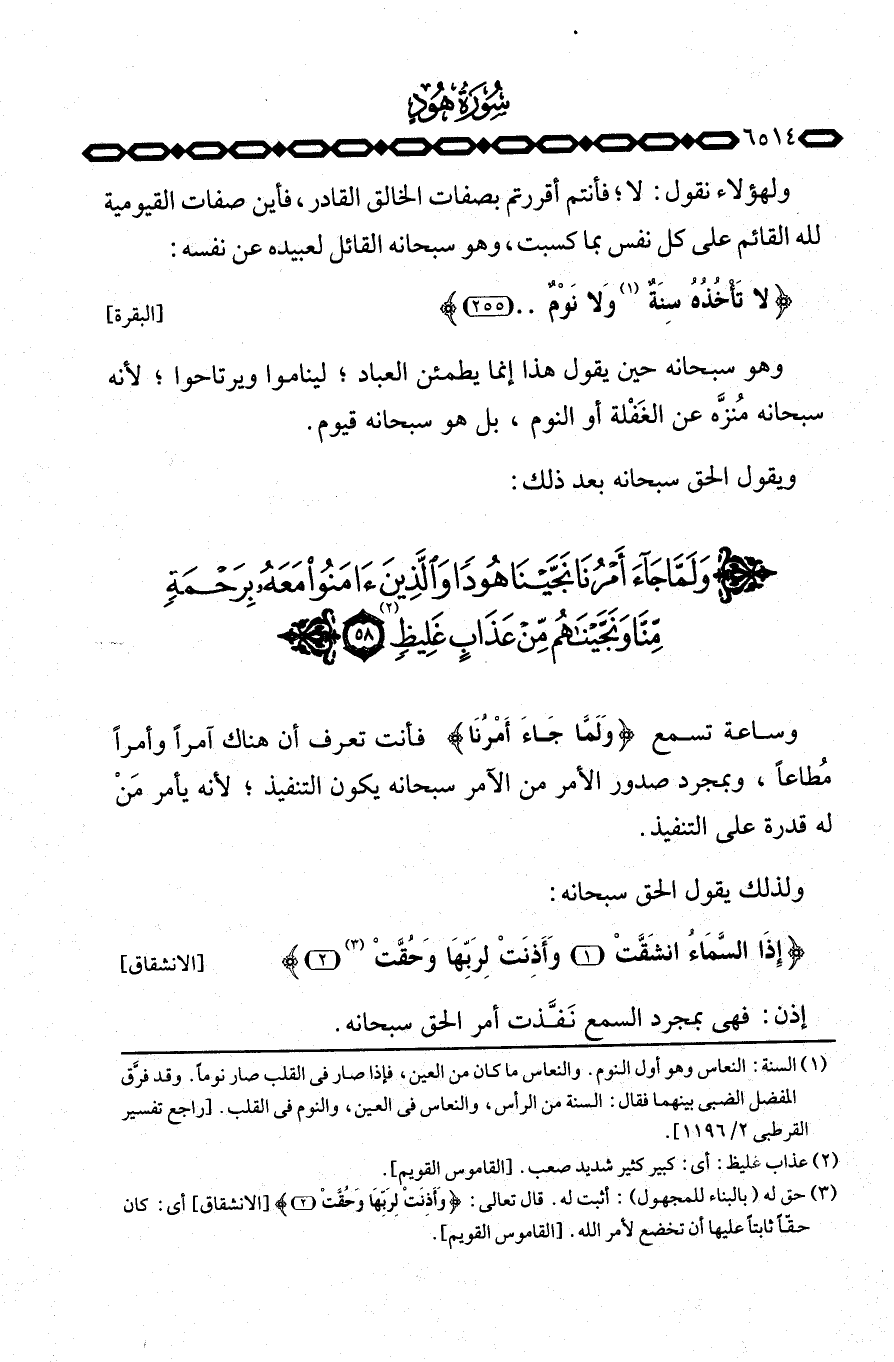 سُورَةُ هُودٍ
٦٥١٤
ولهؤلاء نقول : لا ؛ فأنتم أقررتم بصفات الخالق القادر ، فأين صفات القيومية
لله القائم على كل نفس بما كسبت ، وهو سبحانه القائل لعبيده عن نفسه :
﴿ لا تَأْخُذُهُ سِنَةٌ (١) وَلا نَوْمٌ .. (٢٥٥) ﴾ [البقرة]
وهو سبحانه حين يقول هذا إنما يطمئن العباد ؛ ليناموا ويرتاحوا ؛ لأنه
سبحانه مُنزَّه عن الغَفْلة أو النوم ، بل هو سبحانه قيوم .
ويقول الحق سبحانه بعد ذلك :
وَلَمَّا جَآءَ أَمْرُنَا نَجَّيْنَا هُودًا وَٱلَّذِينَ ءَامَنُوا۟ مَعَهُۥ بِرَحْمَةٍ
مِّنَّا وَنَجَّيْنَٰهُم مِّنْ عَذَابٍ غَلِيظٍ (٢) ٥٨
وساعة تسمع ﴿ وَلَمَّا جَاءَ أَمْرُنَا ﴾ فأنت تعرف أن هناك آمراً وأمراً
مُطاعاً ، وبمجرد صدور الأمر من الآمر سبحانه يكون التنفيذ ؛ لأنه يأمر مَنْ
له قدرة على التنفيذ .
ولذلك يقول الحق سبحانه :
﴿ إِذَا السَّمَاءُ انشَقَّتْ (١) وَأَذِنَتْ لِرَبِّهَا وَحُقَّتْ (٣) (٢) ﴾ [الانشقاق]
إذن : فهى بمجرد السمع نَفَّذت أمر الحق سبحانه .
(١) السنة : النعاس وهو أول النوم . والنعاس ما كان من العين ، فإذا صار فى القلب صار نوماً . وقد فرَّق
المفضل الضبى بينهما فقال : السنة من الرأس ، والنعاس فى العين ، والنوم فى القلب . [راجع تفسير
القرطبى ٢/ ١١٩٦] .
(٢) عذاب غليظ : أى : كبير كثير شديد صعب . [القاموس القويم] .
(٣) حق له ( بالبناء للمجهول ) : أثبت له . قال تعالى : ﴿ وَأَذِنَتْ لِرَبِّهَا وَحُقَّتْ (٢) ﴾ [الانشقاق] أى : كان
حقّاً ثابتاً عليها أن تخضع لأمر الله . [القاموس القويم] .